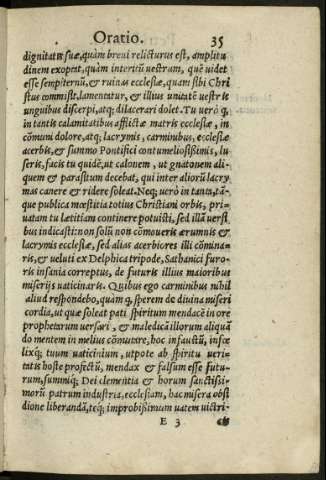 Oratio. 35
dignitatē suæ, quàm breui relicturus est, amplitu
dinem exoptat, quàm interitū vestram, quē videt
esse sempiternū, & ruinas ecclesiæ, quam sibi Chri
stus commisit, lamentatur, & illius unitatē vestris
unguibus discerpi, atq; dilacerari dolet. Tu verò q,
in tantis calamitatibus afflictæ matris ecclesiæ, in
cōmuni dolore, atq; lacrymis, carminibus, ecclesiæ
acerbis, & summo Pontifici contumeliosißimis, lu
seris, facis tu quidē, ut calonem, ut gnatonem ali-
quem & parasitum decebat, qui inter aliorū lacry
mas canere & ridere soleat. Neq; uerò in tanta, tā-
que publica mœstitia totius Christiani orbis, pri-
uatam tu lætitiam continere potuisti, sed illā versi
bus indicasti: non solū non cōmoueris ærumnis &
lacrymis ecclesiæ, sed alias acerbiores illi cōmina-
ris, & veluti ex Delphica tripode, Sathanici furo-
ris insania correptus, de futuris illius maioribus
miserijs vaticinaris. Quibus ego carminibus nihil
aliud respondebo, quàm q, sperem de diuina miseri
cordia, ut quæ soleat pati spiritum mendacē in ore
prophetarum versari, & maledicā illorum aliquā
do mentem in melius cōmutare, hoc infaustū, infœ
lixq; tuum uaticinium, utpote ab spiritu ueri-
tatis hoste profectū, mendax & falsum esse futu-
rum, summiq; Dei clementia & horum sanctissi-
morū patrum industria, ecclesiam, hac misera obsi
dione liberandā, teq; improbißimum uatem uictri-
E 3